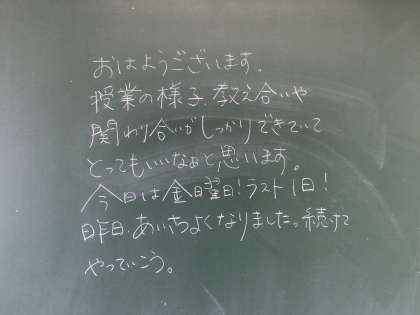 おはようございます。
授業の様子、教え合いや
関わり合いがしっかりできていて
とってもいいなぁと思います。
今日は金曜日!ラスト1日!
昨日、あいさつよくなりました。続けて
やっていこう。